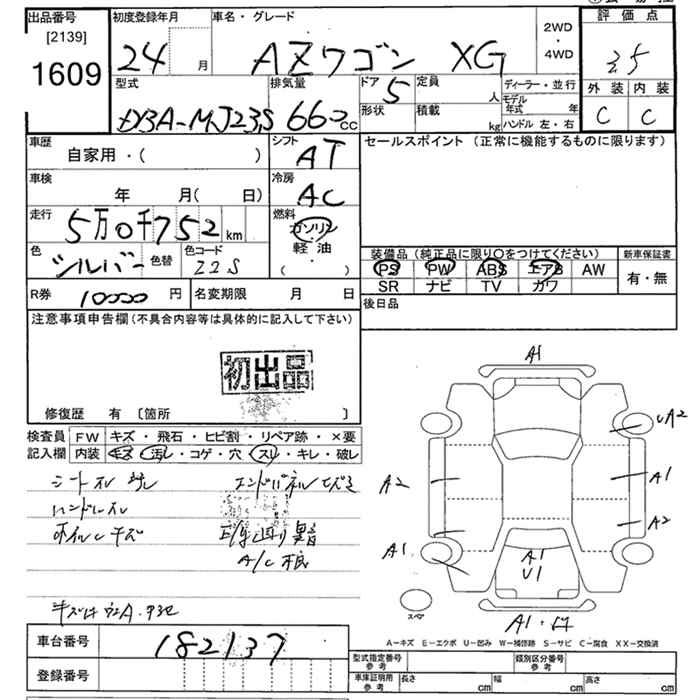 出品番号 初度登録年月 車名・グレード 2WD・4WD 評価点
[2139]
1609 24 月 AZワゴン XG 3.5
型式 排気量 ドア 定員 ディーラー・並行 外装 内装
DBA-MJ23S 660 cc 5 人 モデル年式 年 C C
形状 積載 kg ハンドル 左・右
車歴 シフト セールスポイント (正常に機能するものに限ります)
自家用・( ) AT
車検 冷房
年 月( 日) AC
走行 燃料
5万0千752 km ガソリン
軽・油
( )
色 色替 色コード 装備品 (純正品に限り○をつけてください) 新車保証書
シルバー Z2S PS PW ABS エアB AW 有・無
SR ナビ TV カワ
R券 10000 円 名変期限 月 日 後日品
注意事項申告欄 (不具合内容等は具体的に記入して下さい)
初出品
修復歴 有 〔箇所 〕
検査員 FW キズ・飛石・ヒビ割・リペア跡・×要
記入欄 内装 キズ・汚レ・コゲ・穴・スレ・キレ・破レ
シートスレ
ハンドルスレ
ホイルキズ
A/C
A1
UA2
A2 A1
A2
A1 A1
U1
スペア
A1・
A-キズ E-エクボ U-凹み W-補修跡 S-サビ C-腐食 XX-交換済
車台番号 182137
登録番号
型式指定番号 参考 類別区分番号 参考
車庫証明用 参考 長さ cm 幅 cm 高さ cm